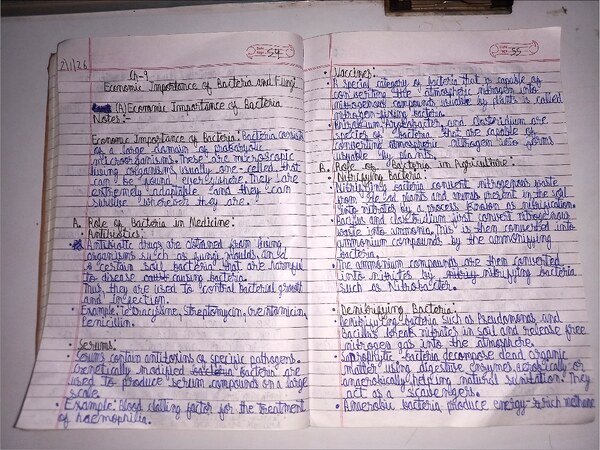 2/1/26
Page 54
Ch-9
Economic Importance of Bacteria and Fungi
(A) Economic Importance of Bacteria
Notes:-
Economic Importance of Bacteria: Bacteria consist
of a large domain of prokaryotic
microorganisms. These are microscopic
living organisms usually one-celled that
can be found everywhere. They are
extremely adaptable and they can
survive wherever they are.
A. Role of Bacteria in Medicine:
• Antibiotics:
Antibiotic drugs are obtained from living
organisms such as fungi moulds and
certain soil bacteria that are harmful
to disease causing bacteria.
Thus they are used to control bacterial growth
and infection.
• Example: Tetracycline, Streptomycin, Gentamicin,
Penicillin.
• Serums:
• Serums contain antitoxins of specific pathogens.
Genetically modified bacteria are
used to produce serum compounds on a large
scale.
• Example: Blood clotting factor for the treatment
of haemophilia.
Page 55
• Vaccines:
• A special category of bacteria that is capable of
converting the atmospheric nitrogen into
nitrogenous compounds usable by plants is called
nitrogen-fixing bacteria.
• Rhizobium, Azotobacter and Clostridium are
species of bacteria that are capable of
converting atmospheric nitrogen into forms
usable by plants.
B. Role of Bacteria in Agriculture:
• Nitrifying Bacteria:
• Nitrifying bacteria convert nitrogenous waste
from dead plants and animals present in the soil
into nitrates by a process known as nitrification.
• Bacillus and Clostridium first convert nitrogenous
waste into ammonia. This is then converted into
ammonium compounds by the ammonifying
bacteria.
• The ammonium compounds are then converted
into nitrites by nitrifying bacteria
such as Nitrobacter.
• Denitrifying Bacteria:
• Denitrifying bacteria such as Pseudomonas and
Bacillus break nitrates in soil and release free
nitrogen gas into the atmosphere.
• Saprophytic bacteria decompose dead organic
matter using digestive enzymes aerobically or
anaerobically helping natural sanitation. They
act as a scavengers.
• Anaerobic bacteria produce energy-rich methane